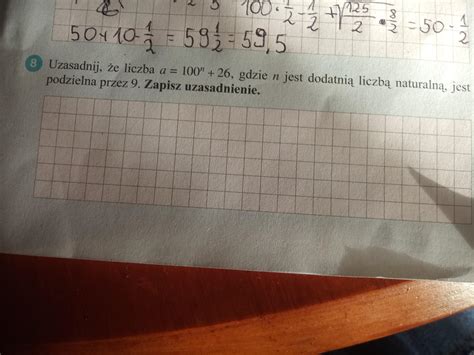 100 · 1/2 - 1/2 + √125/2 · 8/2 = 50 - 1/2
50+10-1/2 = 59 1/2 = 59,5
8 Uzasadnij, że liczba a = 100ⁿ + 26, gdzie n jest dodatnią liczbą naturalną, jest
podzielna przez 9. Zapisz uzasadnienie.